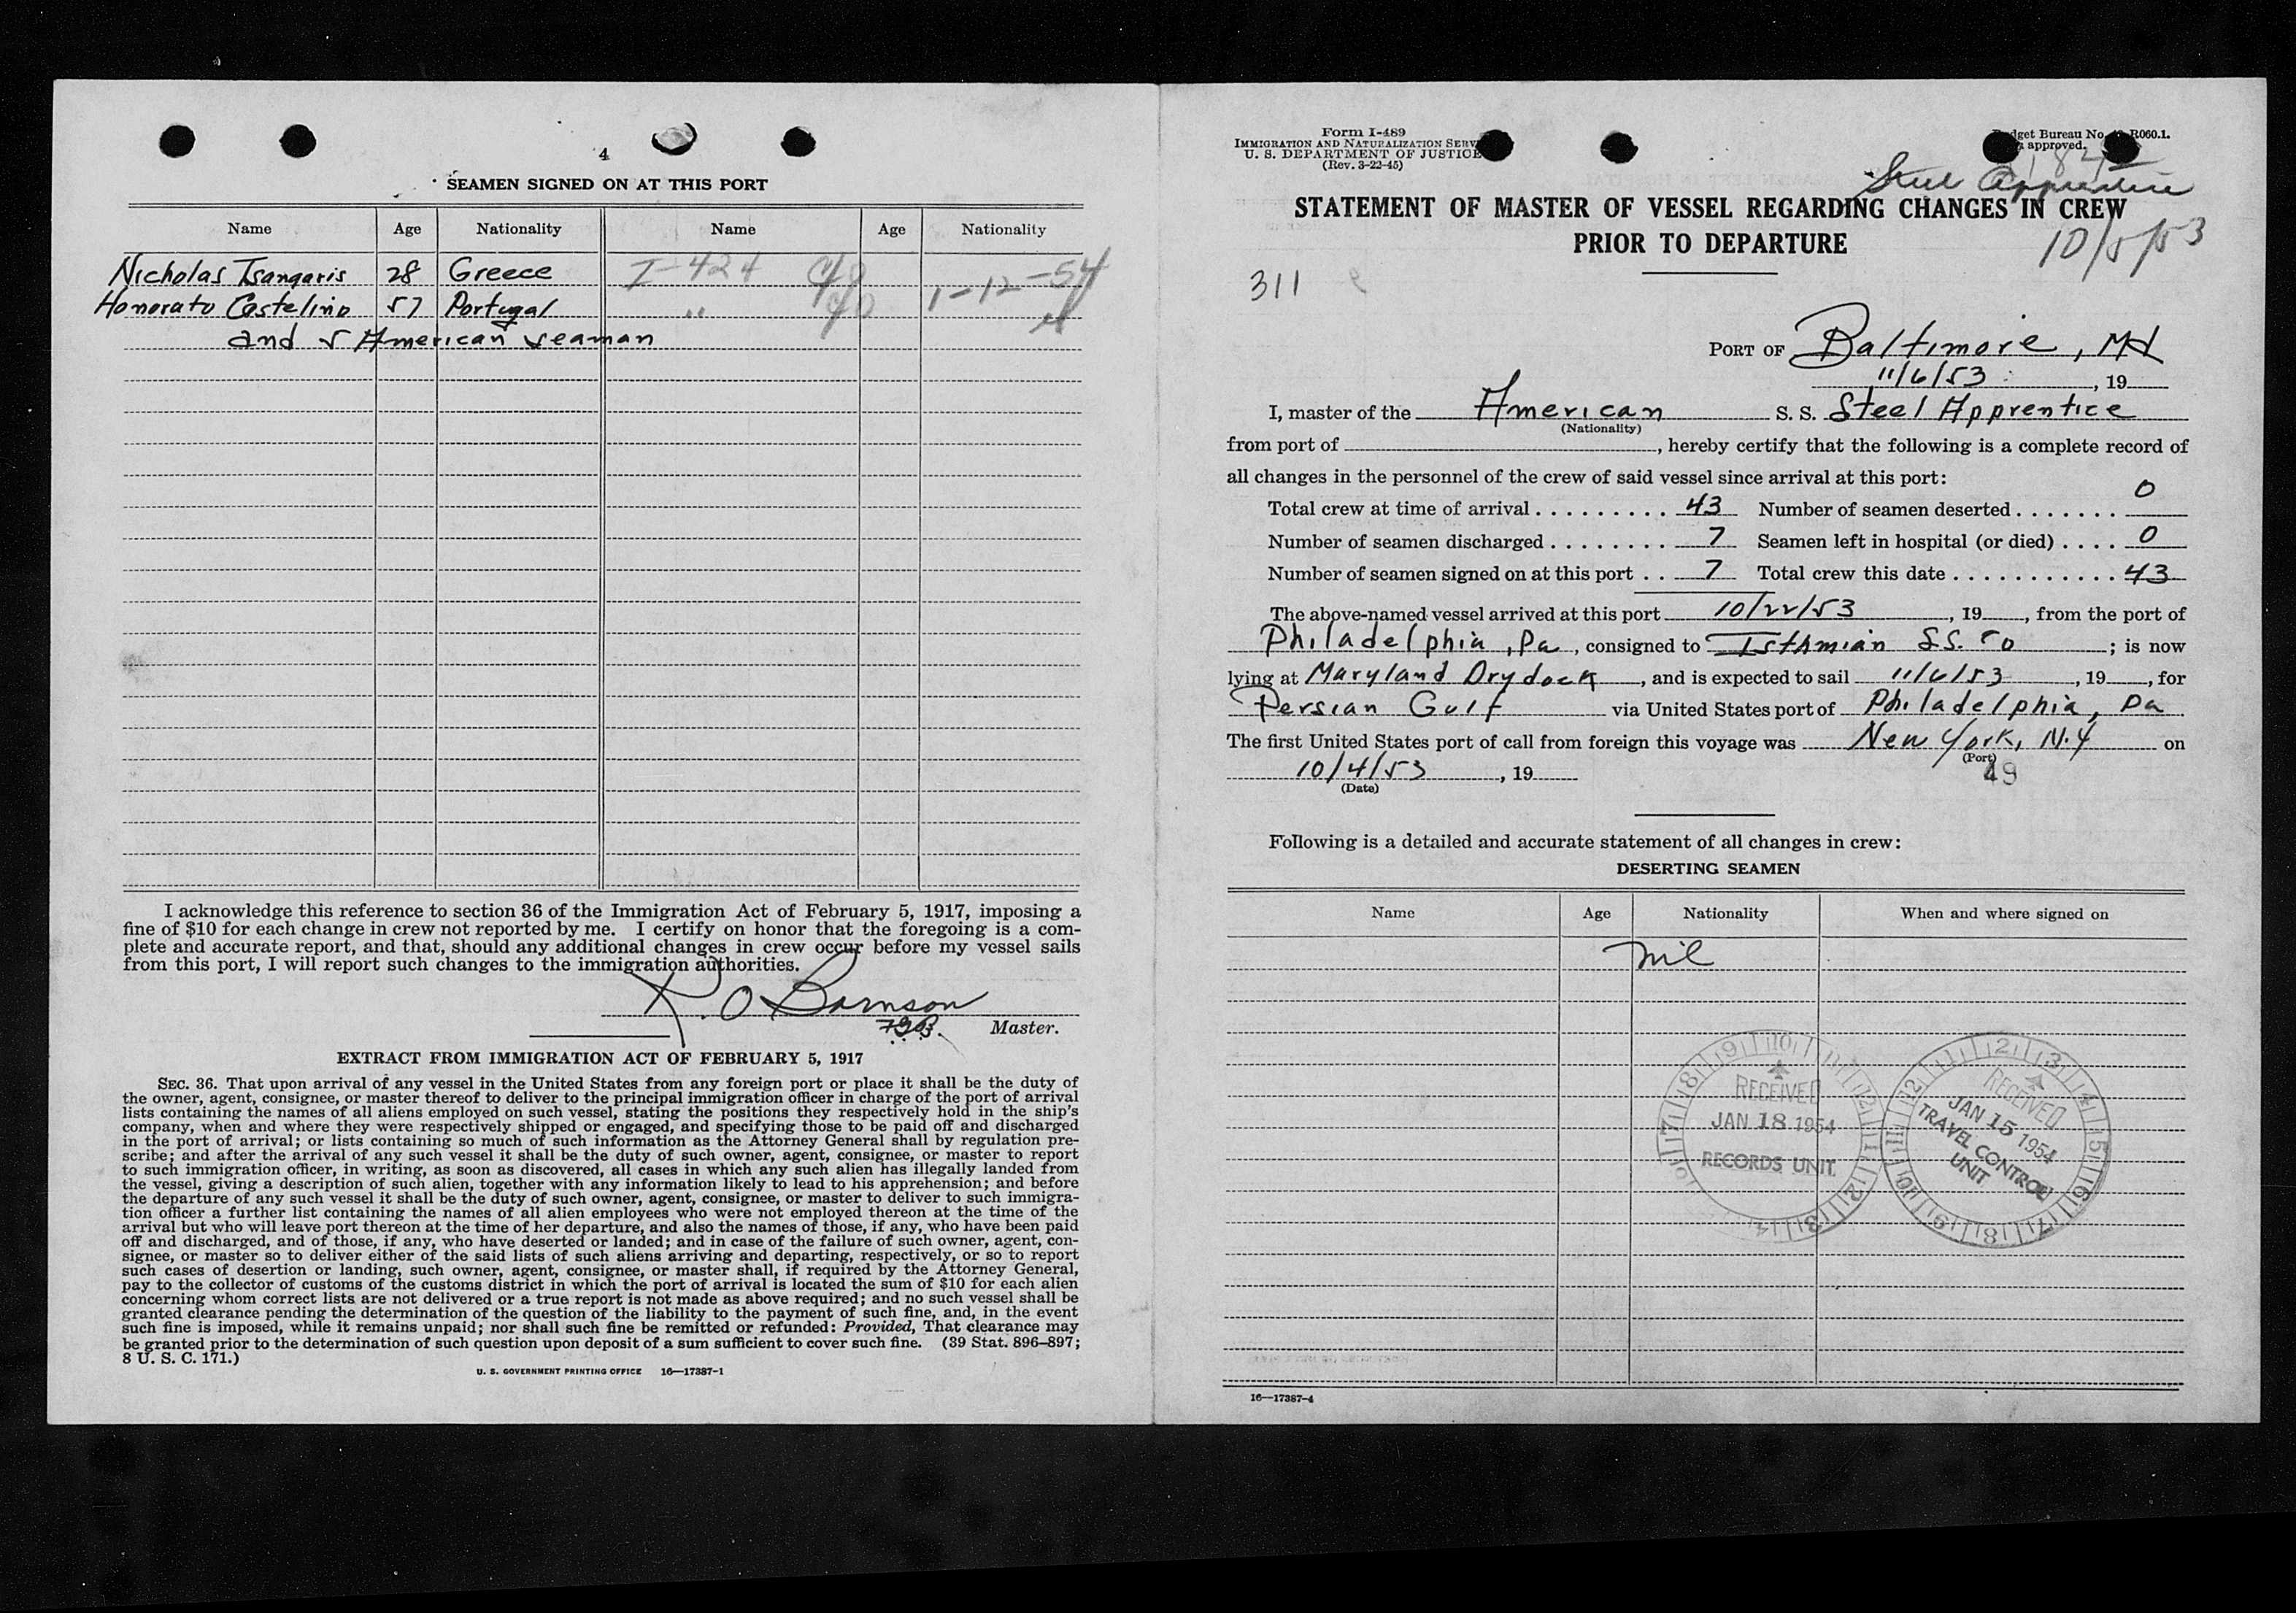 4
SEAMEN SIGNED ON AT THIS PORT
Name Age Nationality Name Age Nationality
Nicholas Tsangaris 28 Greece I-424 1-12-54
Honorato Costelino 57 Portugal "
and 5 American seaman
I acknowledge this reference to section 36 of the Immigration Act of February 5, 1917, imposing a
fine of $10 for each change in crew not reported by me. I certify on honor that the foregoing is a com-
plete and accurate report, and that, should any additional changes in crew occur before my vessel sails
from this port, I will report such changes to the immigration authorities.
R. O Barnson
Master.
EXTRACT FROM IMMIGRATION ACT OF FEBRUARY 5, 1917
SEC. 36. That upon arrival of any vessel in the United States from any foreign port or place it shall be the duty of
the owner, agent, consignee, or master thereof to deliver to the principal immigration officer in charge of the port of arrival
lists containing the names of all aliens employed on such vessel, stating the positions they respectively hold in the ship's
company, when and where they were respectively shipped or engaged, and specifying those to be paid off and discharged
in the port of arrival; or lists containing so much of such information as the Attorney General shall by regulation pre-
scribe; and after the arrival of any such vessel it shall be the duty of such owner, agent, consignee, or master to report
to such immigration officer, in writing, as soon as discovered, all cases in which any such alien has illegally landed from
the vessel, giving a description of such alien, together with any information likely to lead to his apprehension; and before
the departure of any such vessel it shall be the duty of such owner, agent, consignee, or master to deliver to such immigra-
tion officer a further list containing the names of all alien employees who were not employed thereon at the time of the
arrival but who will leave port thereon at the time of her departure, and also the names of those, if any, who have been paid
off and discharged, and of those, if any, who have deserted or landed; and in case of the failure of such owner, agent, con-
signee, or master so to deliver either of the said lists of such aliens arriving and departing, respectively, or so to report
such cases of desertion or landing, such owner, agent, consignee, or master shall, if required by the Attorney General,
pay to the collector of customs of the customs district in which the port of arrival is located the sum of $10 for each alien
concerning whom correct lists are not delivered or a true report is not made as above required; and no such vessel shall be
granted clearance pending the determination of the question of the liability to the payment of such fine, and, in the event
such fine is imposed, while it remains unpaid; nor shall such fine be remitted or refunded: Provided, That clearance may
be granted prior to the determination of such question upon deposit of a sum sufficient to cover such fine. (39 Stat. 896–897;
8 U. S. C. 171.)
U. S. GOVERNMENT PRINTING OFFICE 16—17387-1
Form I-489
IMMIGRATION AND NATURALIZATION
U. S. DEPARTMENT OF JUSTICE
(Rev. 3-22-45)
Bureau No. R060.1.
approved.
Steel Apprentice
STATEMENT OF MASTER OF VESSEL REGARDING CHANGES IN CREW
PRIOR TO DEPARTURE
10/5/53
311
PORT OF Baltimore, Md
11/6/53 , 19
I, master of the American S. S. Steel Apprentice
(Nationality)
from port of , hereby certify that the following is a complete record of
all changes in the personnel of the crew of said vessel since arrival at this port:
Total crew at time of arrival . . . . . . . . . 43 Number of seamen deserted . . . . . . . 0
Number of seamen discharged . . . . . . . . 7 Seamen left in hospital (or died) . . . . 0
Number of seamen signed on at this port . . 7 Total crew this date . . . . . . . . . . . 43
The above-named vessel arrived at this port 10/22/53 , 19 , from the port of
Philadelphia, Pa , consigned to Isthmian S.S. Co ; is now
lying at Maryland Drydock , and is expected to sail 11/6/53 , 19 , for
Persian Gulf via United States port of Philadelphia, Pa
The first United States port of call from foreign this voyage was New York, N.Y on
(Port)
10/4/53 , 19
(Date)
49
Following is a detailed and accurate statement of all changes in crew:
DESERTING SEAMEN
Name Age Nationality When and where signed on
nil
RECEIVED
JAN 18 1954
RECORDS UNIT
RECEIVED
JAN 15 1954
TRAVEL CONTROL
UNIT
16—17387-4